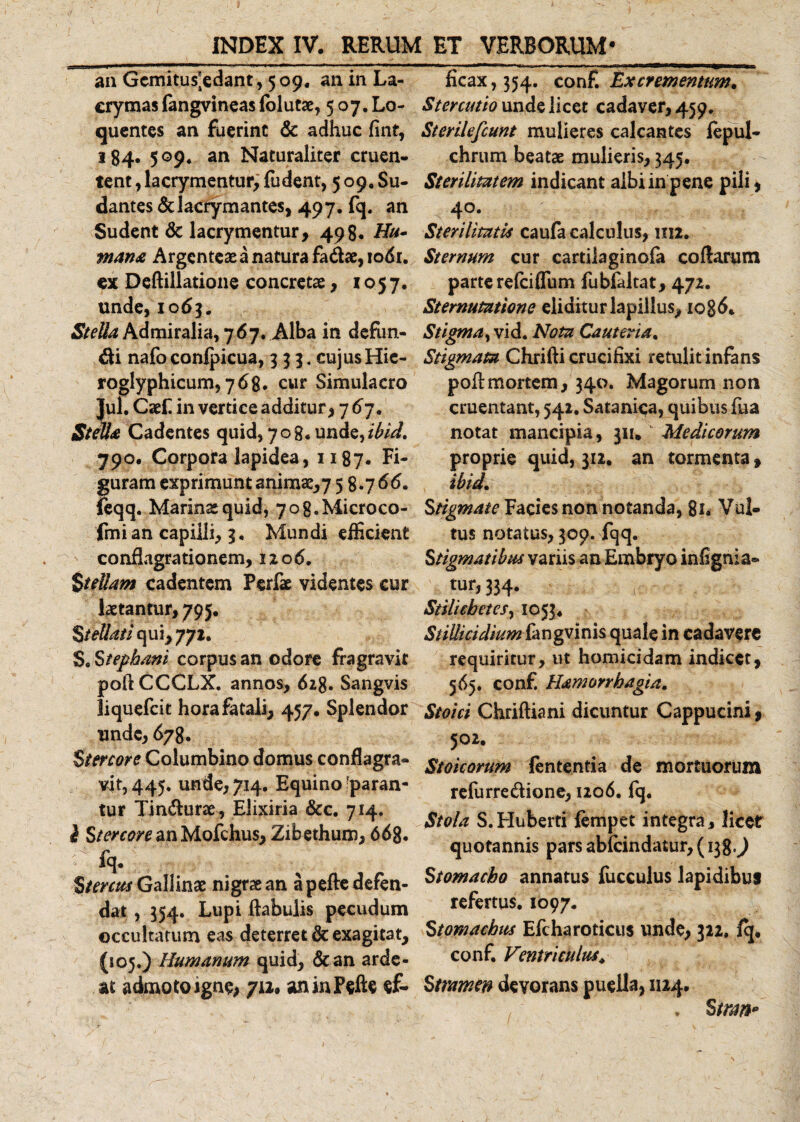 INDEX IV. RERUM ET VERBORUM•
an Gemitus edant, 509. an in La-
crymas ſangvineas ſolutæ, 507. Lo-
quentes an fuerint & adhuc ſint,
184. 509. an Naturaliter cruen-
tent, lacrymentur, ſudent, 509. Su-
dantes & lacrymantes, 497. ſq. an
Sudent & lacrymentur, 498. Hu-
manæ Argenteæ à natura factæ, 1061.
ex Deſtillatione concretæ, 1057.
unde, 1063.
Stella Admiralia, 767. Alba in defun-
cti naſo conſpicua, 333. cujus Hie-
roglyphicum, 768. cur Simulacro
Jul. Cæſ. in vertice additur, 767.
Stellæ Cadentes quid, 708. unde, ibid.
790. Corpora lapidea, 1187. Fi-
guram exprimunt animæ, 758. 766.
ſeqq. Marinæ quid, 708. Microco-
ſmi an capilli, 3. Mundi efficient
conflagrationem, 1206.
Stellam cadentem Perſæ videntes cur
lætantur, 795.
Stellati qui, 772.
S. Stephani corpus an odore fragravit
poſt CCCLX. annos, 628. Sangvis
liqueſcit hora fatali, 457. Splendor
unde, 678.
Stercore Columbino domus conflagra-
vit, 445. unde, 714. Equino paran-
tur Tincturæ, Elixiria &c. 714.
è Stercore an Moſchus, Zibethum, 668.
ſq.
Stercus Gallinæ nigræ an à peſte defen-
dat, 354. Lupi ſtabulis pecudum
occultatum eas deterret & exagitat,
(105.) Humanum quid, & an arde-
at admoto igne, 712. an in Peſte ef-
ficax, 354. conf. Excrementum.
Stercutio unde licet cadaver, 459.
Sterileſcunt mulieres calcantes ſepul-
chrum beatæ mulieris, 345.
Sterilitatem indicant albi in pene pili,
40.
Sterilitatis cauſa calculus, 1112.
Sternum cur cartilaginoſa coſtarum
parte reſciſſum ſubſaltat, 472.
Sternutatione eliditur lapillus, 1086.
Stigma, vid. Nota Cauteria.
Stigmata Chriſti crucifixi retulit infans
poſt mortem, 340. Magorum non
cruentant, 542. Satanica, quibus ſua
notat mancipia, 311. Medicorum
proprie quid, 312. an tormenta,
ibid.
Stigmate Facies non notanda, 81. Vul-
tus notatus, 309. ſqq.
Stigmatibus variis an Embryo inſignia-
tur, 334.
Stilichetes, 1053.
Stillicidium ſangvinis quale in cadavere
requiritur, ut homicidam indicet,
565. conf. Hæmorrhagia.
Stoici Chriſtiani dicuntur Cappucini,
502.
Stoicorum ſententia de mortuorum
reſurrectione, 1206. ſq.
Stola S. Huberti ſempet integra, licet
quotannis pars abſcindatur, (138.)
Stomacho annatus ſucculus lapidibus
refertus. 1097.
Stomachus Eſcharoticus unde, 322. ſq.
conf. Ventriculus.
Stramen devorans puella, 1124.
Stran-